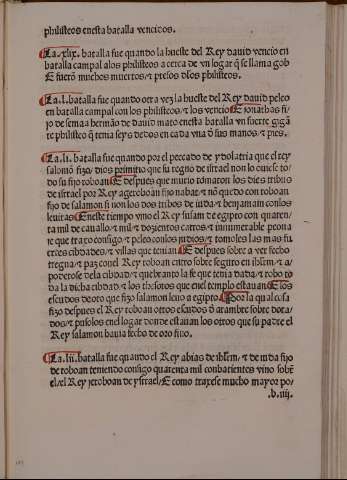 philisteos enesta batalla vencidos.
La .xlix. batalla fue quando la hueste del Rey david vencio en
batalla campal alos philisteos a cerca de vn logar q̃ se llama gob
E fuerõ muchos muertos ⁊ presos dlos philisteos.
La .l. batalla fue quando otra vez la hueste del Rey david peleo
en batalla campal con los philisteos ⁊ los vencio E ionathas fi
jo de semaa hermão de david mato enesta batalla vn fuerte gigã
te philisteo q̃ tenia seys dedos en cada vna d sus manos ⁊ pies.
La .li. batalla fue quando por el peccado de ydolatria que el rey
salomõ fizo dios primitio que su regno de israel non lo ouiese to
do su fijo roboan E despues que murio tomaron los dies tribus
de israel por Rey a geroboan fijo nabat ⁊ nõ quedo con roboan
fijo de salamon si non los dos tribos de iuda ⁊ benjamin con los
leuitas E neste tiempo vino el Rey susam de egipto con quaren
ta mil de cavallo ⁊ mil ⁊ dozientos carros ⁊ innumerable peona
ie que traxo consigo ⁊ peleo conlos judios ⁊ tomoles las mas fu
ertes cibdades ⁊ villas que tenian E despues sobre aver fecho
tregua ⁊ paz con el Rey roboan entro sobre seguro en ihrlm ⁊ a
poderose dela cibdad ⁊ quebranto la fe que tenia dada ⁊ robo to
da la dicha cibdad ⁊ los thesoros que enel templo estauan E los
escudos de oro que fizo salamon leuo a egipto Por la qual cosa
fizo despues el Rey roboan otros escudos d arambre sobre dora
dos ⁊ pusolos enel logar donde estauan los otros que su padre el
Rey salamon bauia fecho de oro fino.
La .lii. batalla fue quando el Rey abias de ihrlm ⁊ de iuda fijo
de roboan teniendo consigo quarenta mil conbatientes vino sobr̃
el Rey jeroboan de ysrael E como traxese mucho mayor po/
.b.iiij.